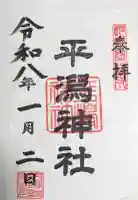 奉拝
平潟神社
令和八年一月二日